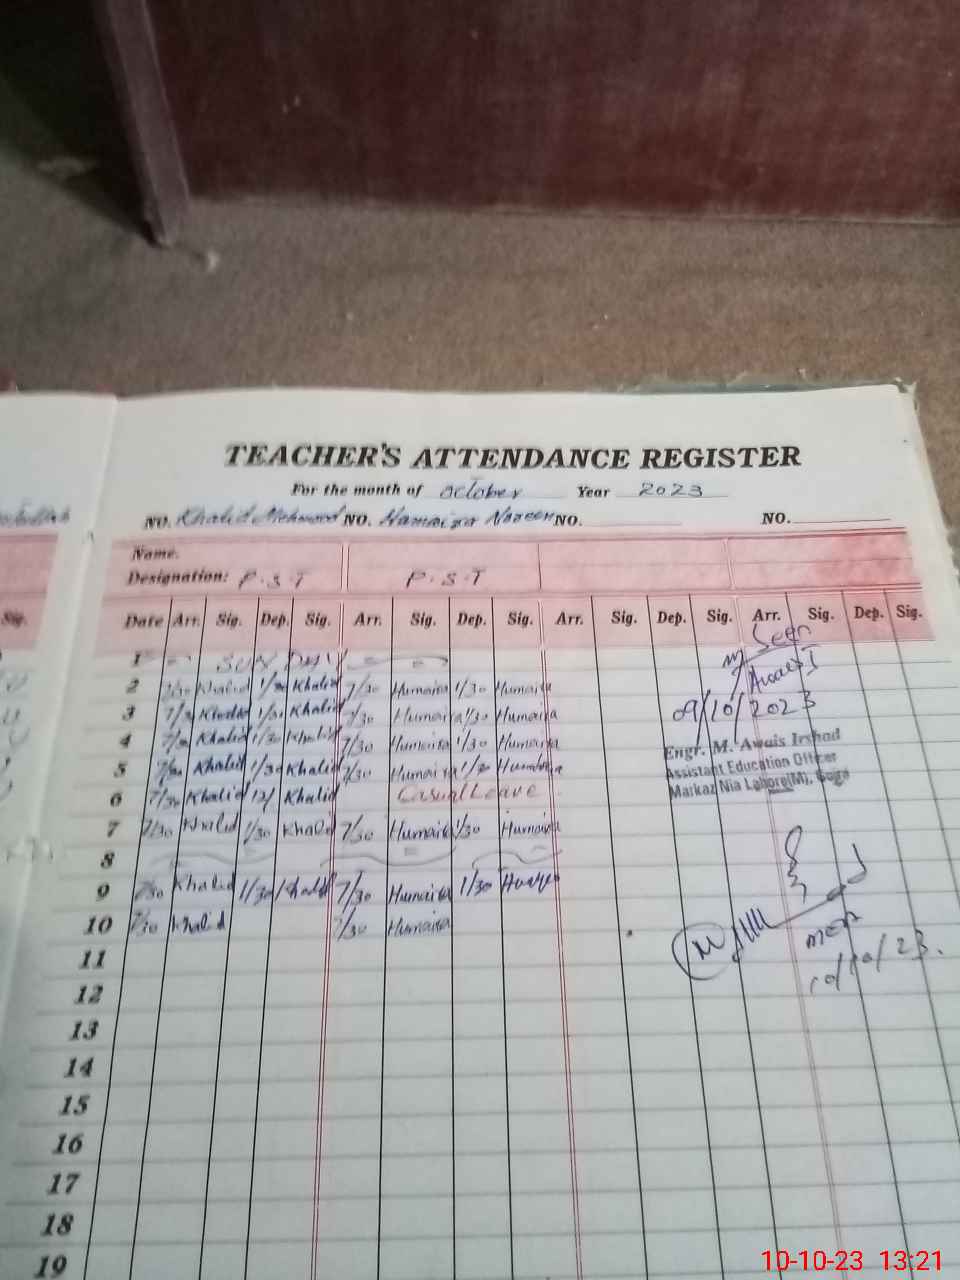 TEACHER'S ATTENDANCE REGISTER
For the month of October Year 2023
NO. Khalid Mehmood NO. Hamaira Naseen NO. NO.
Name.
Designation: P.S.T P.S.T
Sig. Date Arr. Sig. Dep. Sig. Arr. Sig. Dep. Sig. Arr. Sig. Dep. Sig. Arr. Sig. Dep. Sig.
Seen
1 SUN DAY
2 7/30 Khalid 1/30 Khalid 7/30 Humaira 1/30 Humaira
09/10/2023
3 7/30 Khalid 1/30 Khalid 7/30 Humaira 1/30 Humaira
4 7/30 Khalid 1/30 Khalid 7/30 Humaira 1/30 Humaira
Engr. M. Awais Irshad
Assistant Education Officer
Markaz Nia Lahore(M), Goga
5 7/30 Khalid 1/30 Khalid 7/30 Humaira 1/30 Humaira
6 7/30 Khalid 12/ Khalid Casual Leave
7 7/30 Khalid 1/30 Khalid 7/30 Humaira 1/30 Humaira
8
9 7/30 Khalid 1/30 Khalid 7/30 Humaira 1/30
10 7/30 Khalid 7/30 Humaira
MEA
10/10/23.
11
12
13
14
15
16
17
18
19
10-10-23 13:21